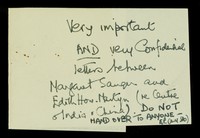 Very important
AND very Confidential
letters between
Margaret Sanger and
Edith How-Martyn (re Centre
of India & China) DO NOT
HAND OVER TO ANYONE